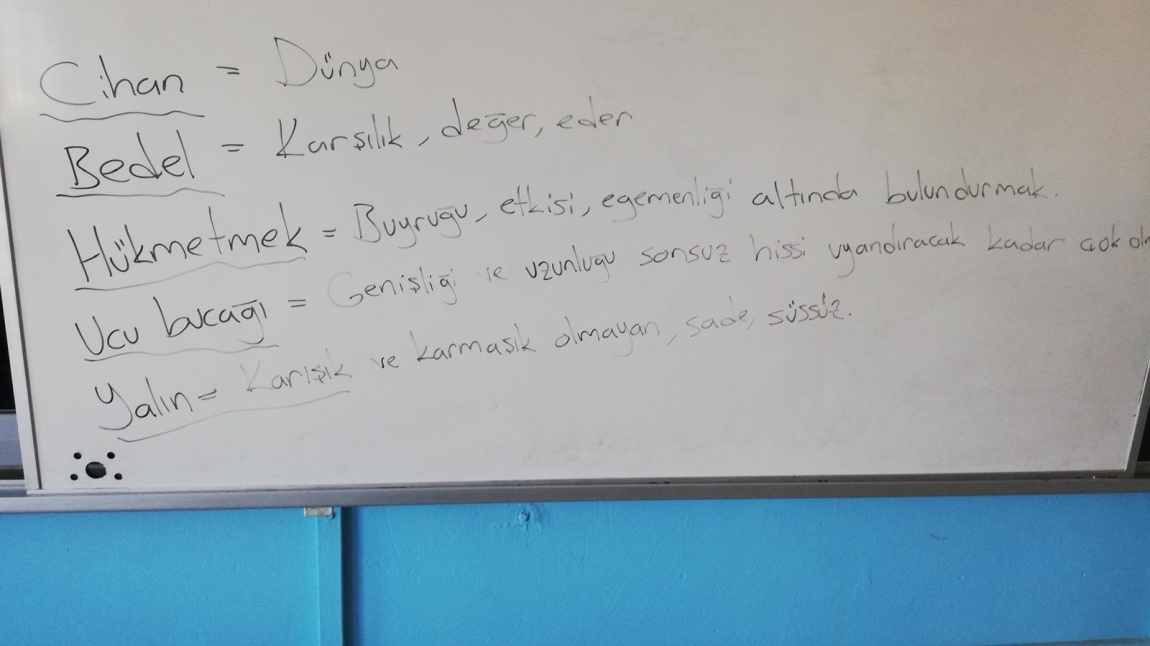 Cihan = Dünya
Bedel = Karşılık, değer, eder
Hükmetmek = Buyruğu, etkisi, egemenliği altında bulundurmak.
Ucu bucağı = Genişliği ve uzunluğu sonsuz hissi uyandıracak kadar çok
Yalın = Karışık ve karmaşık olmayan, sade, süssüz.